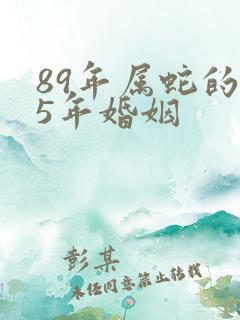 89年属蛇的
5年婚姻
彭某
未经同意禁止转载